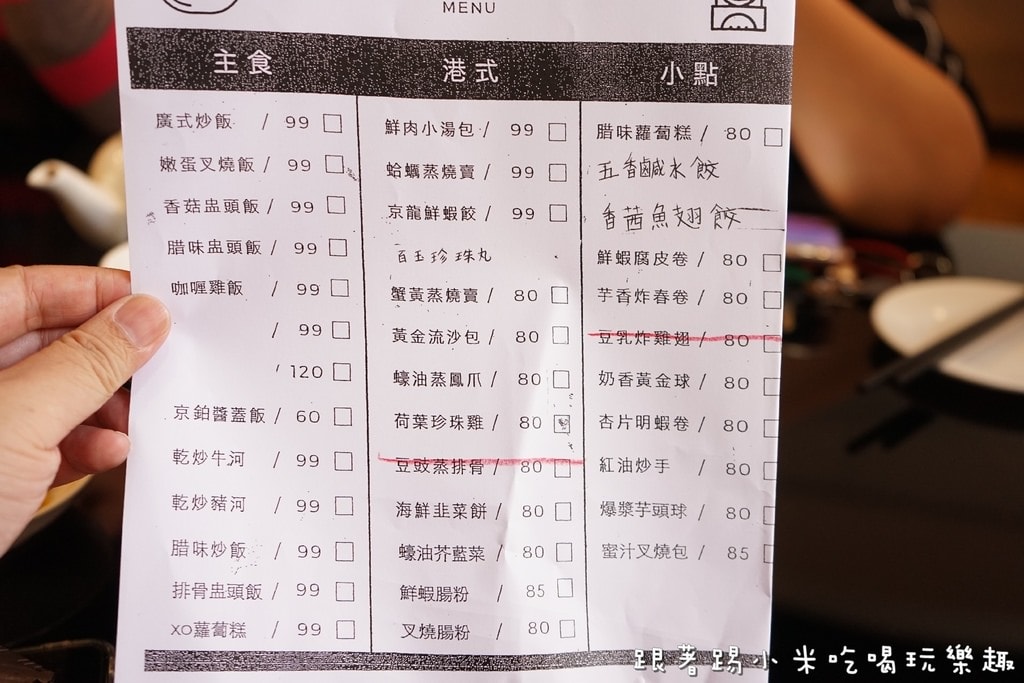 MENU
主食
廣式炒飯 / 99
嫩蛋叉燒飯 / 99
香菇盅頭飯 / 99
腊味盅頭飯 / 99
咖喱雞飯 / 99
/ 99
/ 120
京鉑醬蓋飯 / 60
乾炒牛河 / 99
乾炒豬河 / 99
腊味炒飯 / 99
排骨盅頭飯 / 99
XO蘿蔔糕 / 99
港式
鮮肉小湯包 / 99
蛤蠣蒸燒賣 / 99
京龍鮮蝦餃 / 99
百玉珍珠丸
蟹黃蒸燒賣 / 80
黃金流沙包 / 80
蠔油蒸鳳爪 / 80
荷葉珍珠雞 / 80
豆豉蒸排骨 / 80
海鮮韭菜餅 / 80
蠔油芥藍菜 / 80
鮮蝦腸粉 / 85
叉燒腸粉 / 80
小點
腊味蘿蔔糕 / 80
五香鹹水餃
香茜魚翅餃
鮮蝦腐皮卷 / 80
芋香炸春卷 / 80
豆乳炸雞翅 / 80
奶香黃金球 / 80
杏片明蝦卷 / 80
紅油炒手 / 80
爆漿芋頭球 / 80
蜜汁叉燒包 / 85
跟著踢小米吃喝玩樂趣